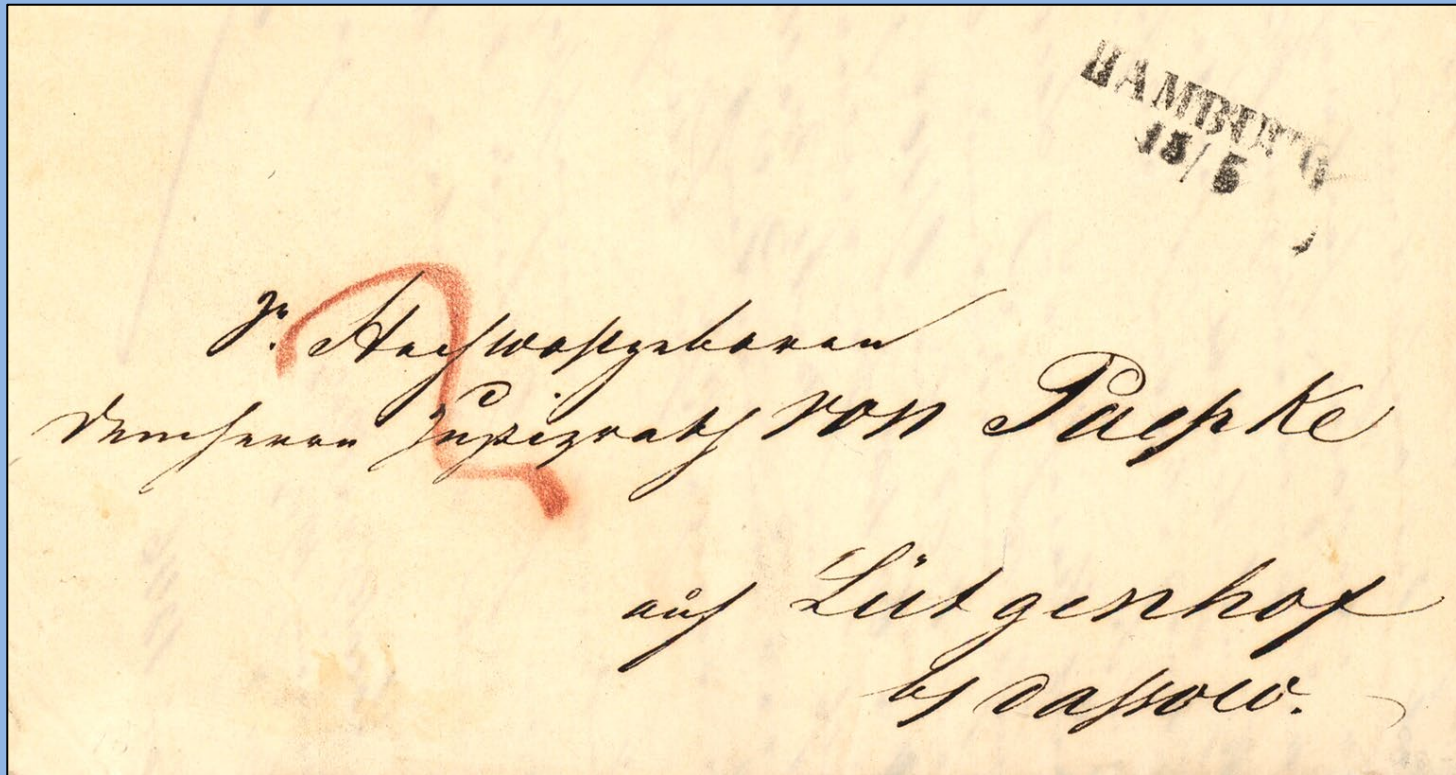 HAMBURG
15/5
2
Sr. Hochwohlgeboren
dem Herrn Justizrath von Paepke
auf Lütgenhof
by Dassow.